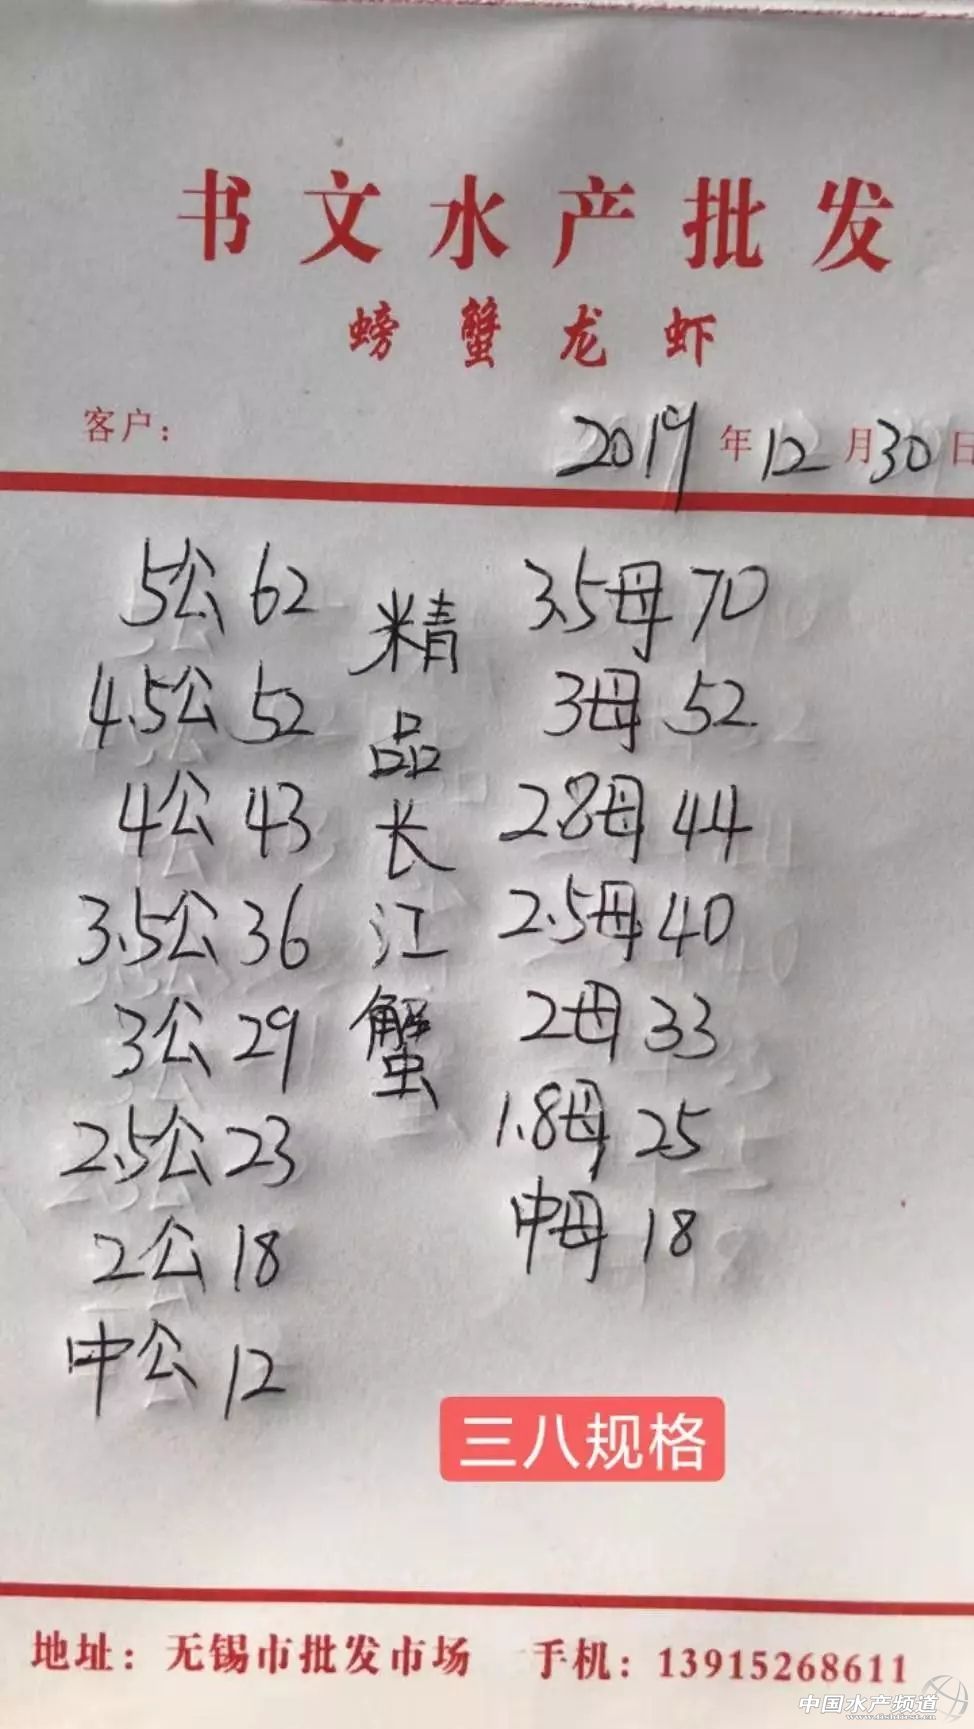 书文水产批发
螃蟹龙虾
客户：
2019年12月30日
5公 62
4.5公 52
4公 43
3.5公 36
3公 29
2.5公 23
2公 18
中公 12
精品长江蟹
3.5母 70
3母 52
2.8母 44
2.5母 40
2母 33
1.8母 25
中母 18
三八规格
地址：无锡市批发市场 手机：13915268611
中国水产频道
www.fishfirst.cn